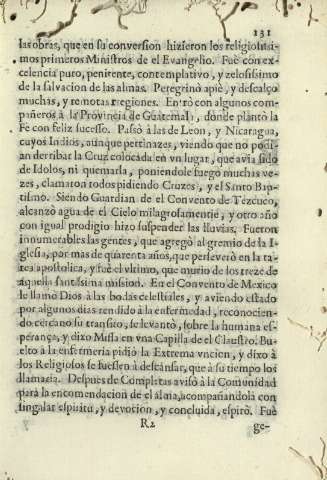 131
las obras, que en su conversion hizieron los religiosissi-
mos primeros Ministros de el Evangelio. Fuè con ex-
celencia puro, penitente, contemplativo, y zelosissimo
de la salvacion de las almas. Peregrinò apiè, y descalço
muchas, y remotas regiones. Entrò con algunos com-
pañeros à la Provincia de Guatemala, donde plantò la
Fe con feliz sucesso. Passò à las de Leon, y Nicaragua,
cuyos Indios, aunque pertinazes, viendo que no podi-
an derribar la Cruz colocada en vn lugar, que avia sido
de Idolos, ni quemarla, poniendole fuego muchas ve-
zes, clamaron todos pidiendo Cruzes, y el Santo Bap-
tismo. Siendo Guardian de el Convento de Tezcuco,
alcanzò agua de el Cielo milagrosamente, y otro año
con igual prodigio hizo suspender las lluvias. Fueron
innumerables las gentes, que agregò al gremio de la I-
glesia, por mas de quarenta años, que perseverò en la ta-
rea apostolica, y fuè el vltimo, que murio de los treze de
aquella santissima mission. En el Convento de Mexico
le llamò Dios à las bodas celestiales, y aviendo estado
por algunos dias rendido à la enfermedad, reconocien-
do cercano su transito, se levantò, sobre la humana es-
perança, y dixo Missa en vna Capilla de el Claustro. Bu-
elto à la enfermeria pidiò la Extrema vncion, y dixo à
los Religiosos se fuessen à descansar, que à su tiempo los
llamaria. Despues de Completas avisò à la Comunidad
para la encomendacion de el alma, acompañandola con
singular espiritu, y devocion, y concluida, espirò. Fuè
R2 ge-